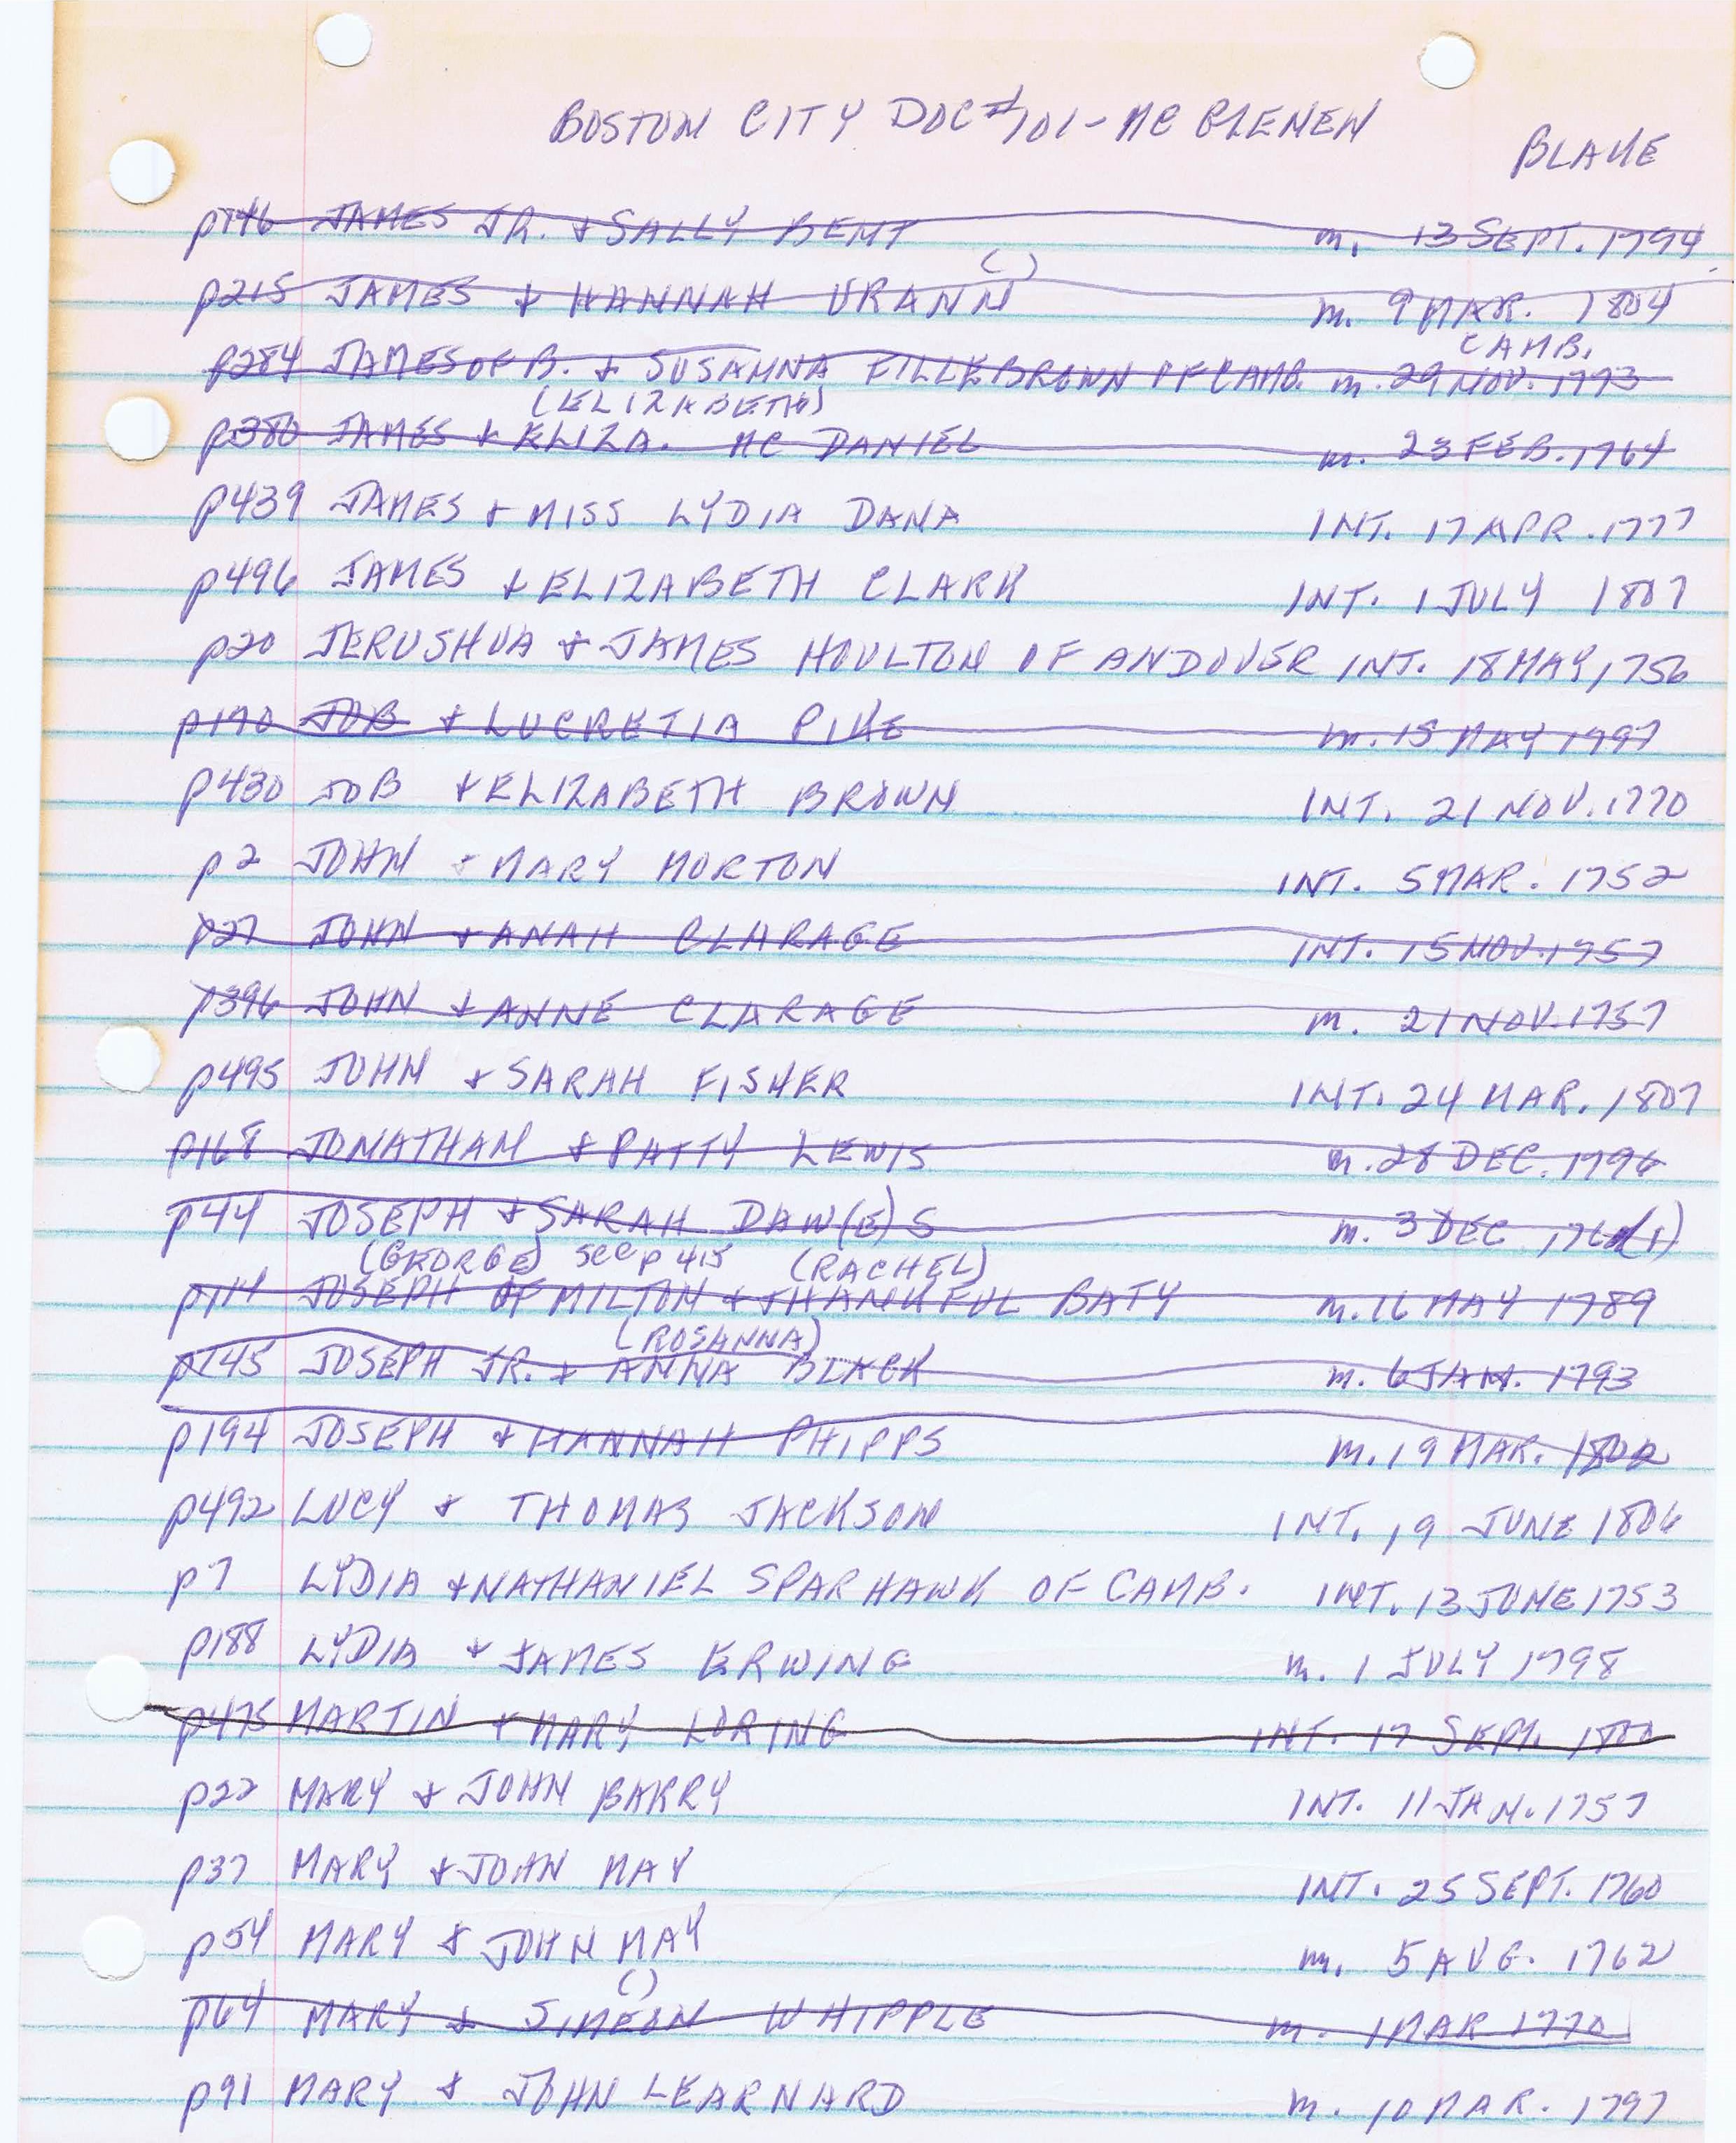 BOSTON CITY DOC#101-MC GLENEN
BLAKE
p146 JAMES JR. & SALLY BENT m. 13 SEPT. 1794
( )
p215 JAMES & HANNAH URANN m. 9 MAR. 1804
CAMB.
p284 JAMES OF B. & SUSANNA FILLEBROWN OF CAMB. m. 29 NOV. 1773
(ELIZABETH)
p380 JAMES & ELIZA. MC DANIEL m. 23 FEB. 1764
p439 JAMES & MISS LYDIA DANA INT. 17 APR. 1777
p496 JAMES & ELIZABETH CLARK INT. 1 JULY 1807
p20 JERUSHUA & JAMES HOULTON OF ANDOVER INT. 18 MAY 1756
p170 JOB & LUCRETIA PIKE m. 15 MAY 1797
p430 JOB & ELIZABETH BROWN INT. 21 NOV. 1770
p2 JOHN & MARY MORTON INT. 5 MAR. 1752
p27 JOHN & ANAH CLARAGE INT. 15 NOV. 1757
p396 JOHN & ANNE CLARAGE m. 21 NOV. 1757
p495 JOHN & SARAH FISHER INT. 24 MAR. 1807
p168 JONATHAN & PATTY LEWIS m. 28 DEC. 1796
p44 JOSEPH & SARAH DAW(E)S m. 3 DEC (1)
(GEORGE) see p 415 (RACHEL)
JOSEPH OF MILTON & THANKFUL BATY m. 16 MAY 1789
(ROSANNA)
p145 JOSEPH JR. & ANNA BLACK m. 6 JAN. 1793
p194 JOSEPH & HANNAH PHIPPS m. 19 MAR. 1802
p492 LUCY & THOMAS JACKSON INT. 19 JUNE 1806
p7 LYDIA & NATHANIEL SPARHAWK OF CAMB. INT. 13 JUNE 1753
p188 LYDIA & JAMES ERWING m. 1 JULY 1798
p475 MARTIN & MARY LORING INT. 17 SEPT. 1800
p22 MARY & JOHN BARRY INT. 11 JAN. 1757
p37 MARY & JOHN MAY INT. 25 SEPT. 1760
p54 MARY & JOHN MAY m. 5 AUG. 1762
( )
p64 MARY & SIMEON WHIPPLE m. 1 MAR 1770
p91 MARY & JOHN LEARNARD m. 10 MAR. 1797